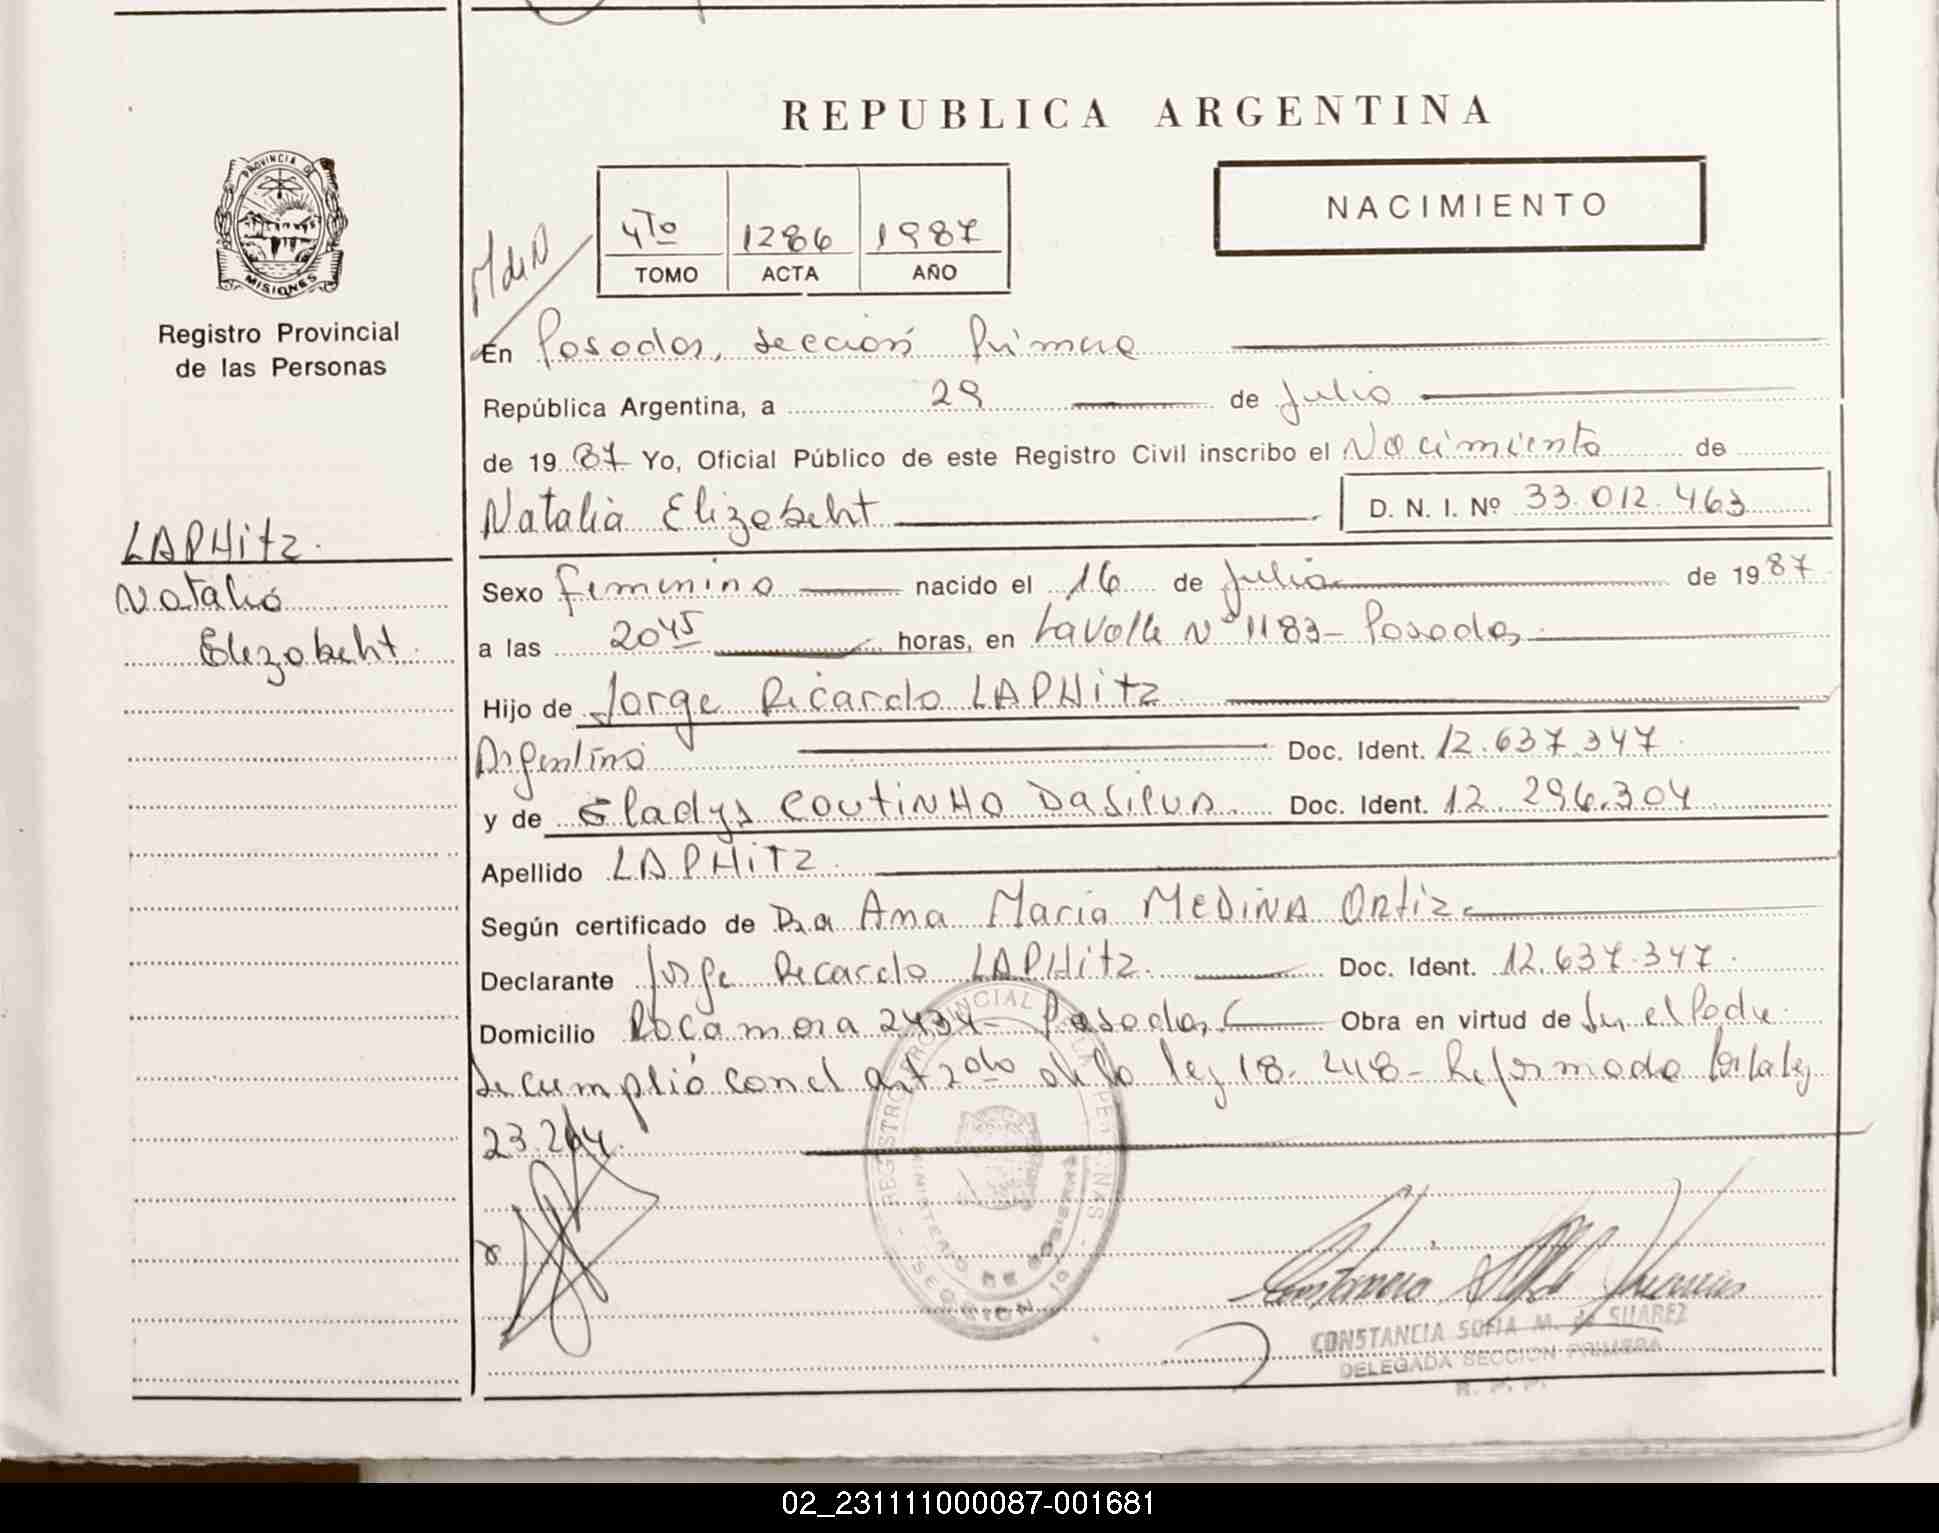 REPUBLICA ARGENTINA
PROVINCIA DE
MISIONES
Registro Provincial
de las Personas
4To 1286 1987
TOMO ACTA AÑO
NACIMIENTO
M de N
En Posadas, Sección Primera
República Argentina, a 29 de Julio
de 1987 Yo, Oficial Público de este Registro Civil inscribo el Nacimiento de
Natalia Elizabeht D. N. I. Nº 33.012.463
LAPHitz.
Natalia
Elizabeht.
Sexo femenino nacido el 16 de Julio de 1987
a las 2045 horas, en Lavalle Nº 1183 - Posadas
Hijo de Jorge Ricardo LAPHitz
Argentino Doc. Ident. 12.637.347
y de Gladys COUTINHO DASILVA Doc. Ident. 12.296.304
Apellido LAPHITZ.
Según certificado de Dra Ana Maria MEDINA Ortiz
Declarante Jorge Ricardo LAPHitz. Doc. Ident. 12.637.347.
Domicilio Rocamora 2434 - Posadas Obra en virtud de Ser el Padre
Se cumplió con el art 2do de la ley 18.248 - Reformada por la ley
23.264.
REGISTRO PROVINCIAL DE LAS PERSONAS
MINISTERIO DE GOBIERNO
SECCION 1a
CONSTANCIA SOFIA M. de SUAREZ
DELEGADA SECCION PRIMERA
R. P. P.
02_231111000087-001681